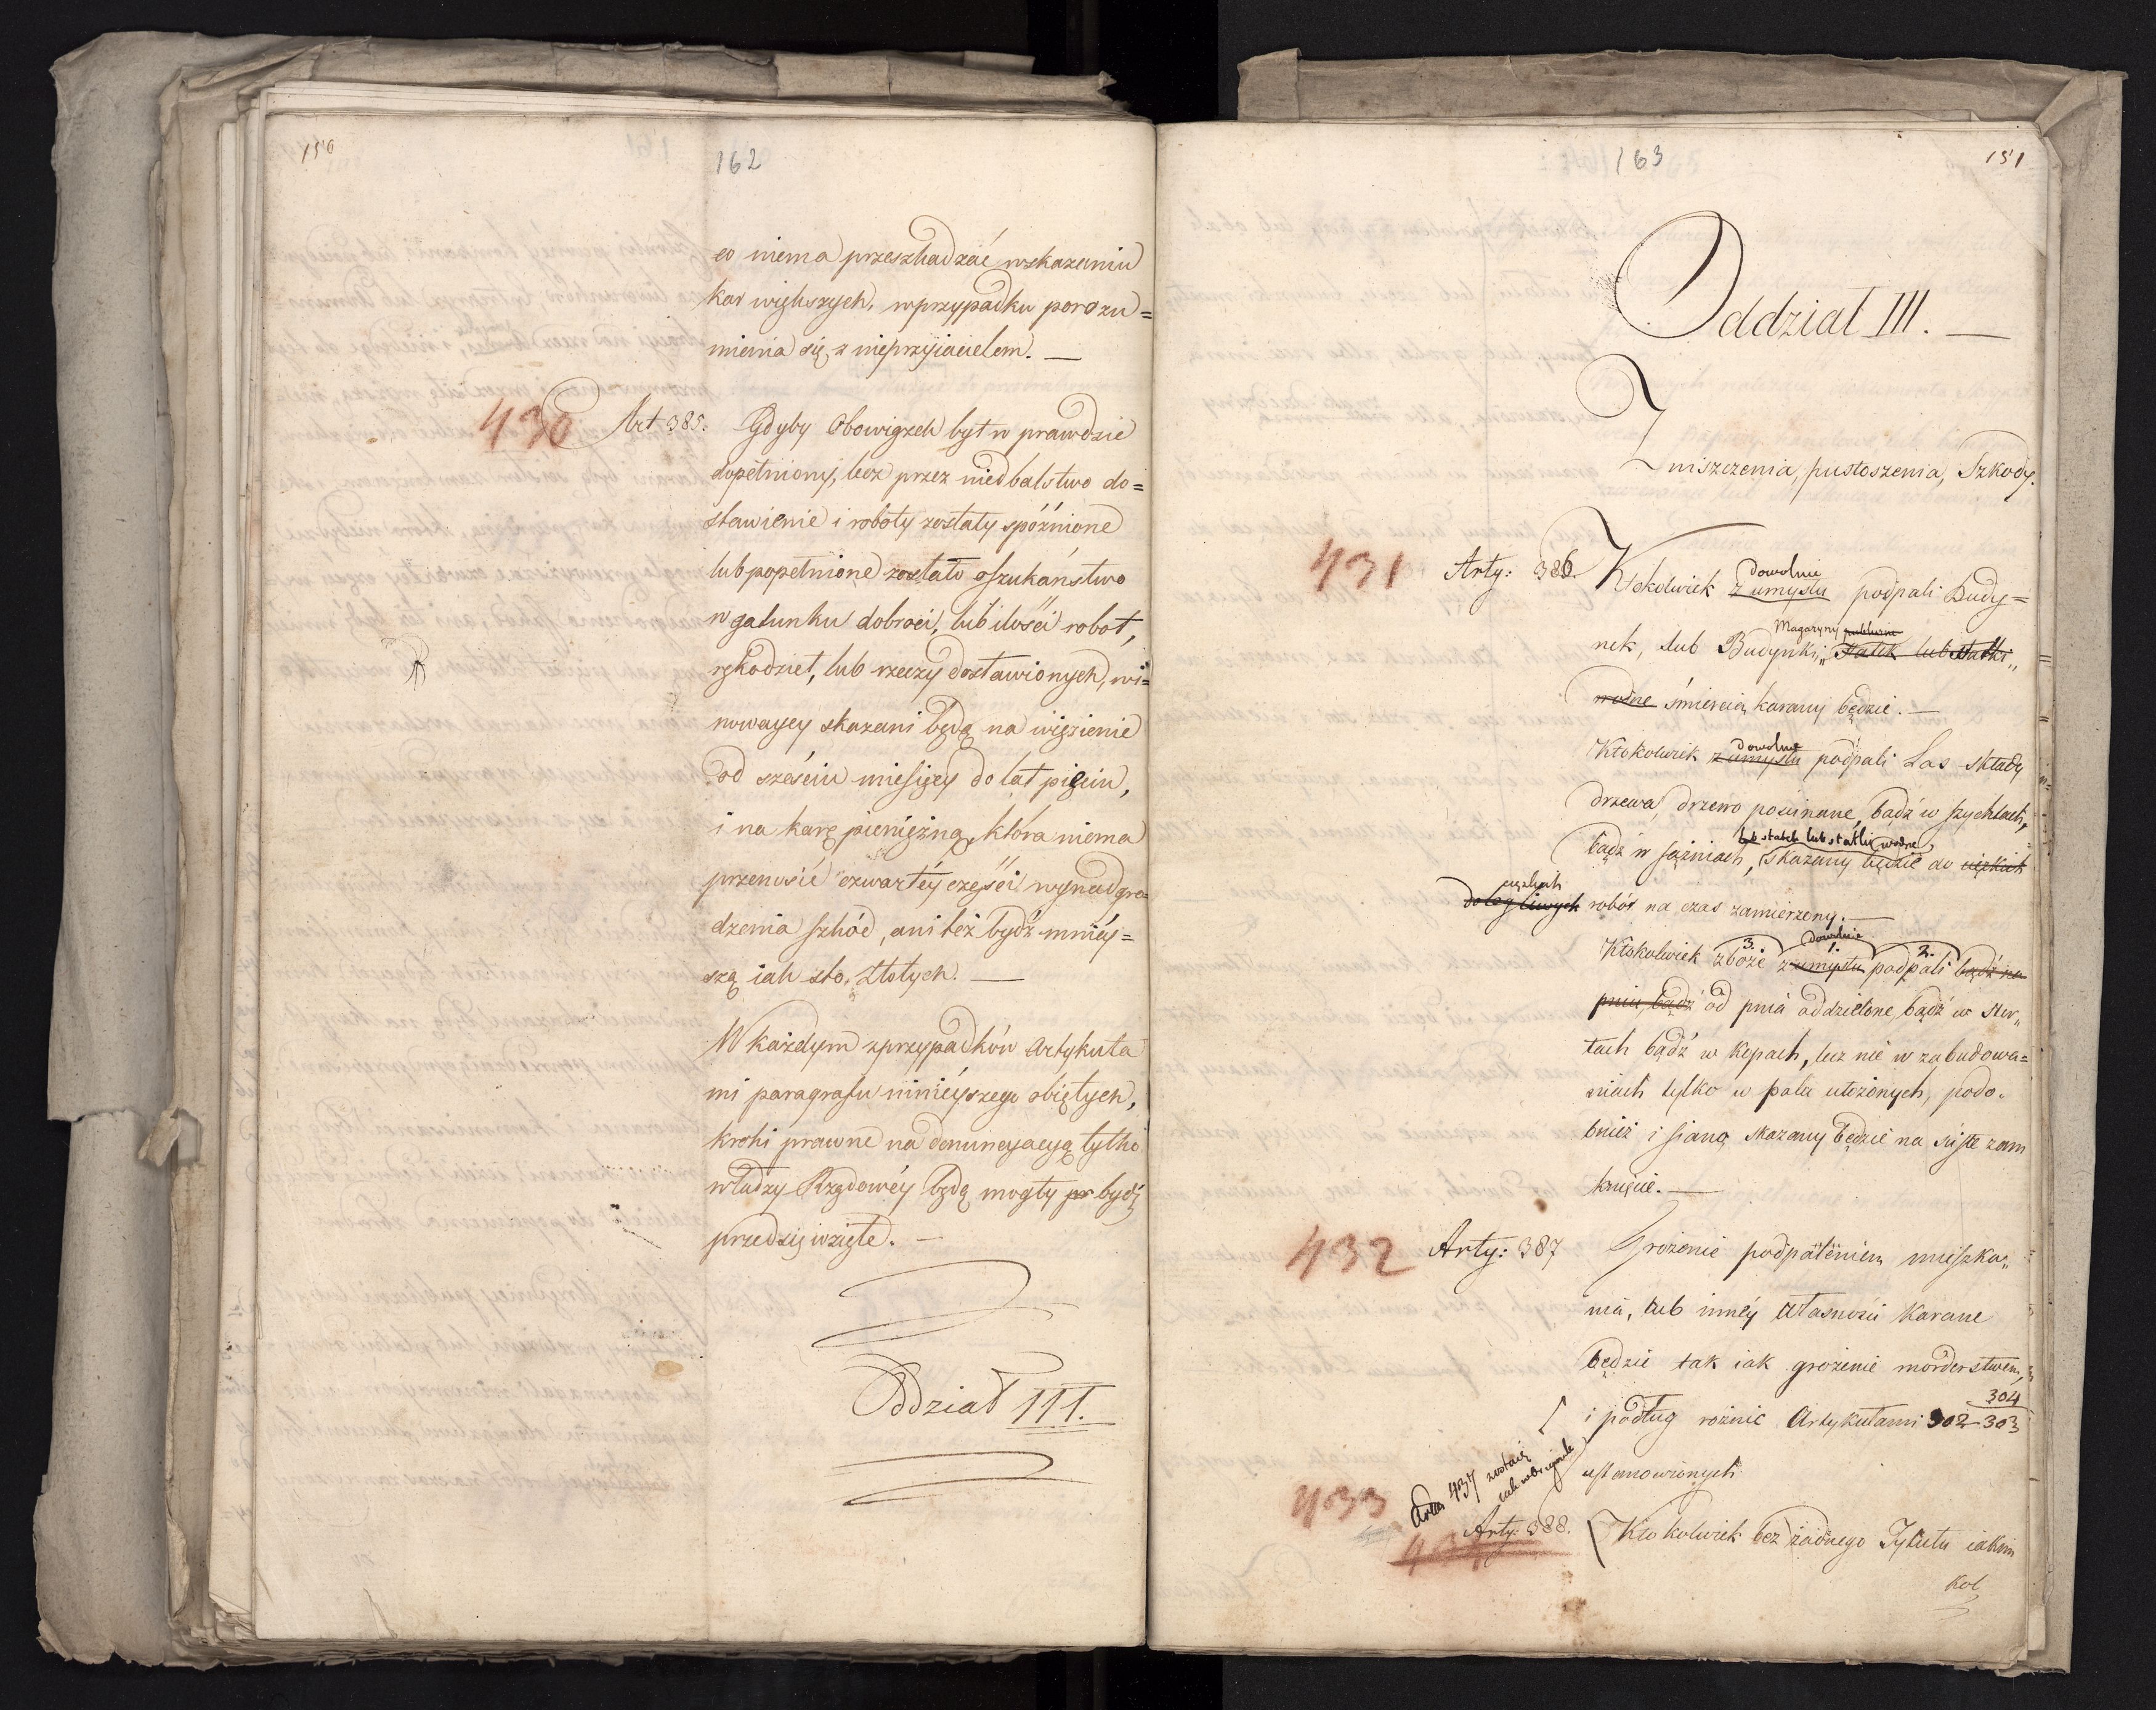 150
162
co niema przeszkadzać wskazaniu
kar większych, w przypadku porozu=
mienia się z nieprzyiacielem. —
430 Art 385. Gdyby Obowiązek był w prawdzie
dopełniony, lecz przez niedbalstwo do=
stawienie i roboty zostały spóźnione
lub popełnione zostało oszukaństwo
w gatunku dobroci, lub ilości robot,
rękodzieł, lub rzeczy dostawionych, wi=
nowaycy skazani będą na więzienie
od sześciu miesięcy do lat pięciu,
i na karę pieniężną, która niema
przenosić czwartéy części wynadgro=
dzenia szkód, ani też bydź mniéy=
szą iak sto. Złotych. —
W każdym z przypadków Artykuła
mi paragrafu ninieyszego obiętych,
kroki prawne na denuncyacyą tylko
władzy Rządowéy będą mogły pr bydź
przedsięwzięte. —
Oddział III.
163
151
Oddział III. —
Zniszczenia, pustoszenia, Szkody.
dowolnie
431 Arty: 386. Ktokolwiek z umysłu podpali Budy=
Magazyny publiczne
nek, lub Budynki „ Statek lub statki „
wodne śmiercią karany będzie. —
dowolnie
Ktokolwiek z umysłu podpali Las składy
drzewa, drzewo pościnane, bądź w szychtach,
lub statek lub statki wodne
bądź w sążniach, skazany będzie do ciężkich
ciężkich
dolegliwych robót na czas zamierzony. —
dowolnie
3. 1. 2.
Ktokolwiek zboże z umysłu podpali bądź na
pniu, bądź od pnia oddzielone, bądź w ster„
tach bądź w kępach, lecz nie w zabudowa=
niach tylko w polu ułożonych, podo„
bnież i siano, skazany będzie na ścisłe zam
knięcie. —
432 Arty: 387 Grożenie podpaleniem mieszka„
nia, lub innéy własności karane
będzie tak iak grożenie morderstwem,
304
i podług różnic Artykułami 302 303
ustanowionych
Arta 437 zostaię
iak w Oryginale
433
Arty: 388. Ktokolwiek bez żadnego Tytułu iakim
434
kol